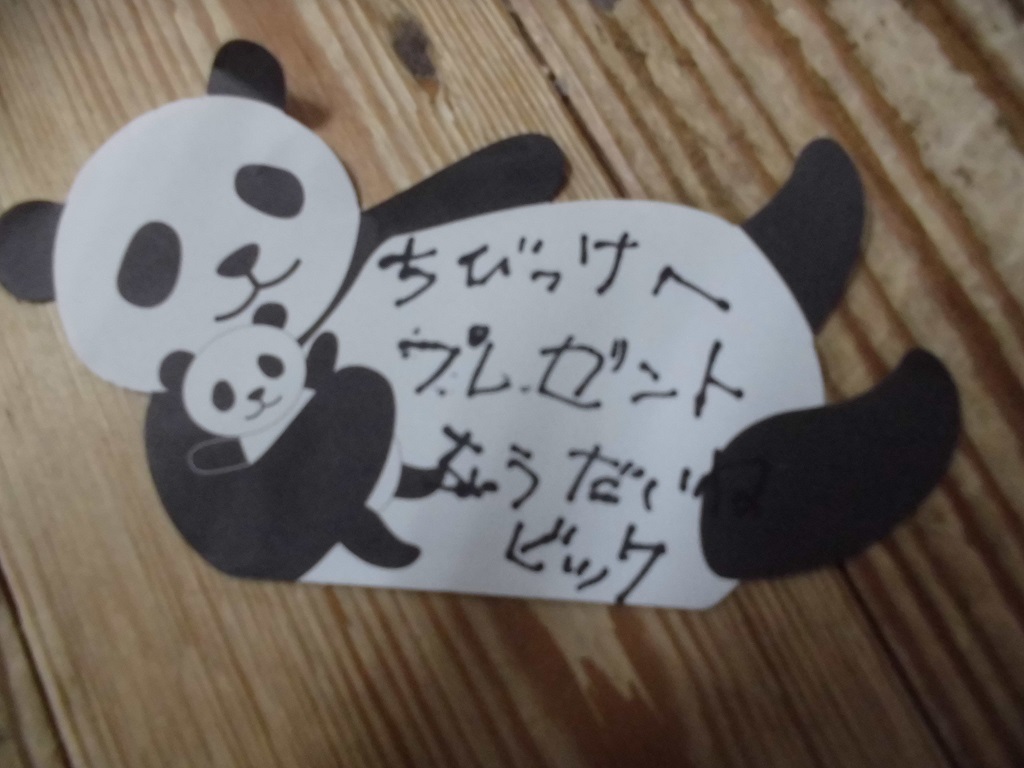 ちびっけへ
プレゼント
ちょうだいね
ビック